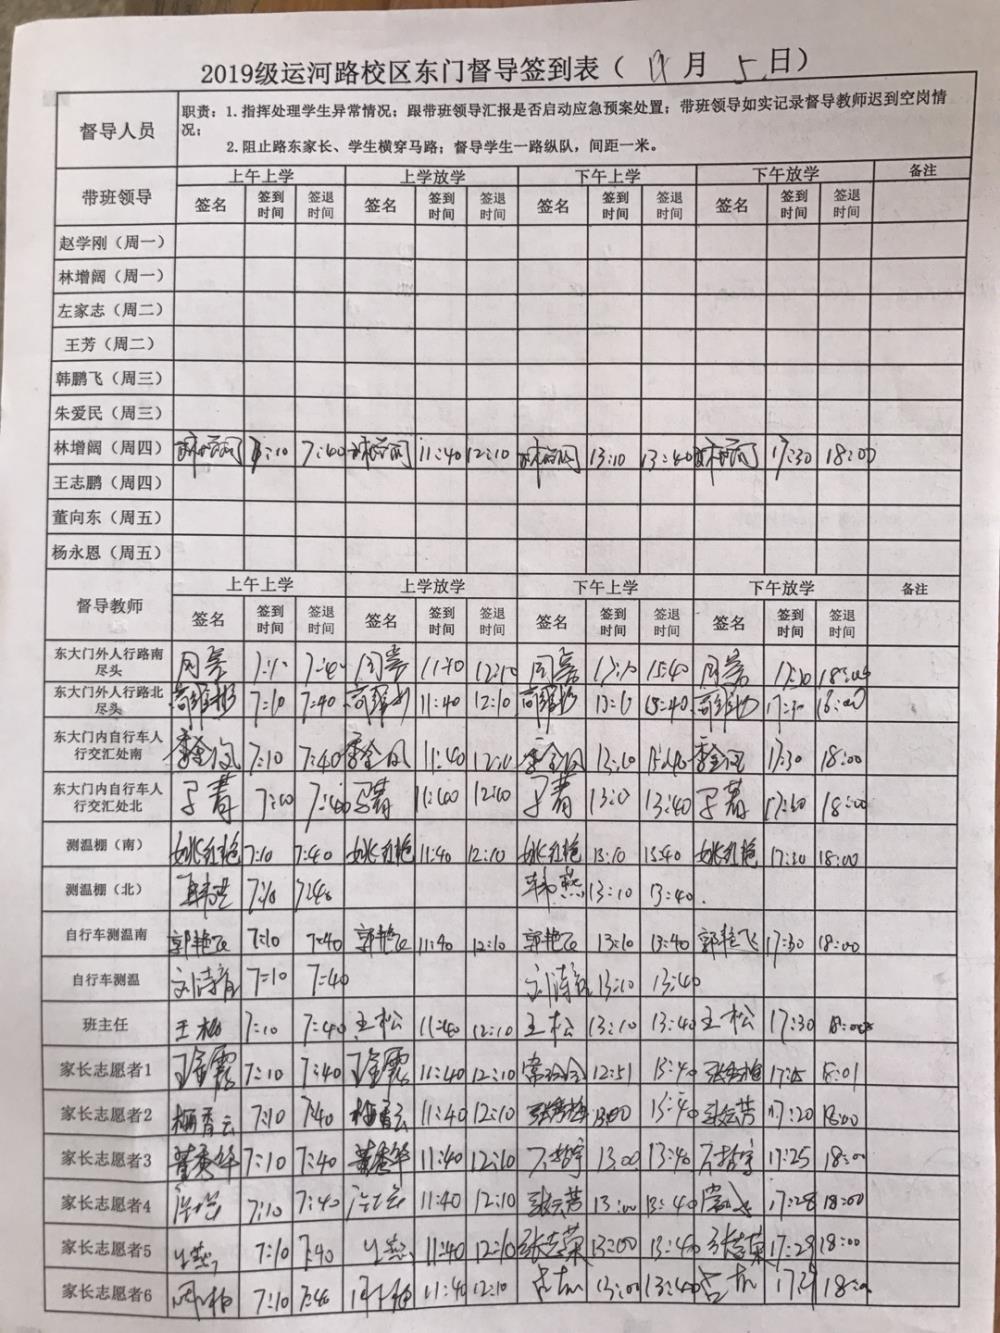 2019级运河路校区东门督导签到表（ 月 5 日）
督导人员
职责：1.指挥处理学生异常情况；跟带班领导汇报是否启动应急预案处置；带班领导如实记录督导教师迟到空岗情
况；
2.阻止路东家长、学生横穿马路；督导学生一路纵队，间距一米。
带班领导 上午上学 上学放学 下午上学 下午放学 备注
签名 签到时间 签退时间 签名 签到时间 签退时间 签名 签到时间 签退时间 签名 签到时间 签退时间
赵学刚（周一）
林增阔（周一）
左家志（周二）
王芳（周二）
韩鹏飞（周三）
朱爱民（周三）
林增阔（周四） 林增阔 7:10 7:40 林增阔 11:40 12:10 林增阔 13:10 13:40 林增阔 17:30 18:00
王志鹏（周四）
董向东（周五）
杨永恩（周五）
督导教师 上午上学 上学放学 下午上学 下午放学 备注
签名 签到时间 签退时间 签名 签到时间 签退时间 签名 签到时间 签退时间 签名 签到时间 签退时间
东大门外人行路南尽头 7:40 11:40 12:10 18:00
东大门外人行路北尽头 7:10 7:40 11:40 12:10
东大门内自行车人行交汇处南 7:10 7:40 11:40 13:10 17:30 18:00
东大门内自行车人行交汇处北 7:40 11:40 13:40 18:00
测温棚（南） 姚红艳 7:10 7:40 姚红艳 11:40 12:10 姚红艳 13:10 13:40 姚红艳 17:30 18:00
测温棚（北） 7:10 7:40 韩燕 13:10 13:40
自行车测温南 郭艳飞 7:10 7:40 郭艳飞 11:40 12:10 郭艳飞 13:10 13:40 郭艳飞 17:30 18:00
自行车测温 7:10 7:40 13:10 13:40
班主任 王松 7:10 7:40 王松 11:40 12:10 王松 13:10 13:40 王松 17:30 18:00
家长志愿者1 7:10 7:40 11:40 12:10 12:51 13:40
家长志愿者2 梅香云 7:10 7:40 梅香云 11:40 12:10 13:00 13:40 张云芳 17:20 18:00
家长志愿者3 董秀华 7:10 7:40 董秀华 11:40 12:10 13:00 13:40 17:25 18:00
家长志愿者4 7:10 7:40 11:40 12:10 张云芳 13:00 13:40 17:28 18:00
家长志愿者5 7:10 7:40 11:40 12:10 张志荣 13:00 13:40 张志荣 17:29 18:00
家长志愿者6 7:10 7:40 11:40 12:10 13:00 13:40 18:00